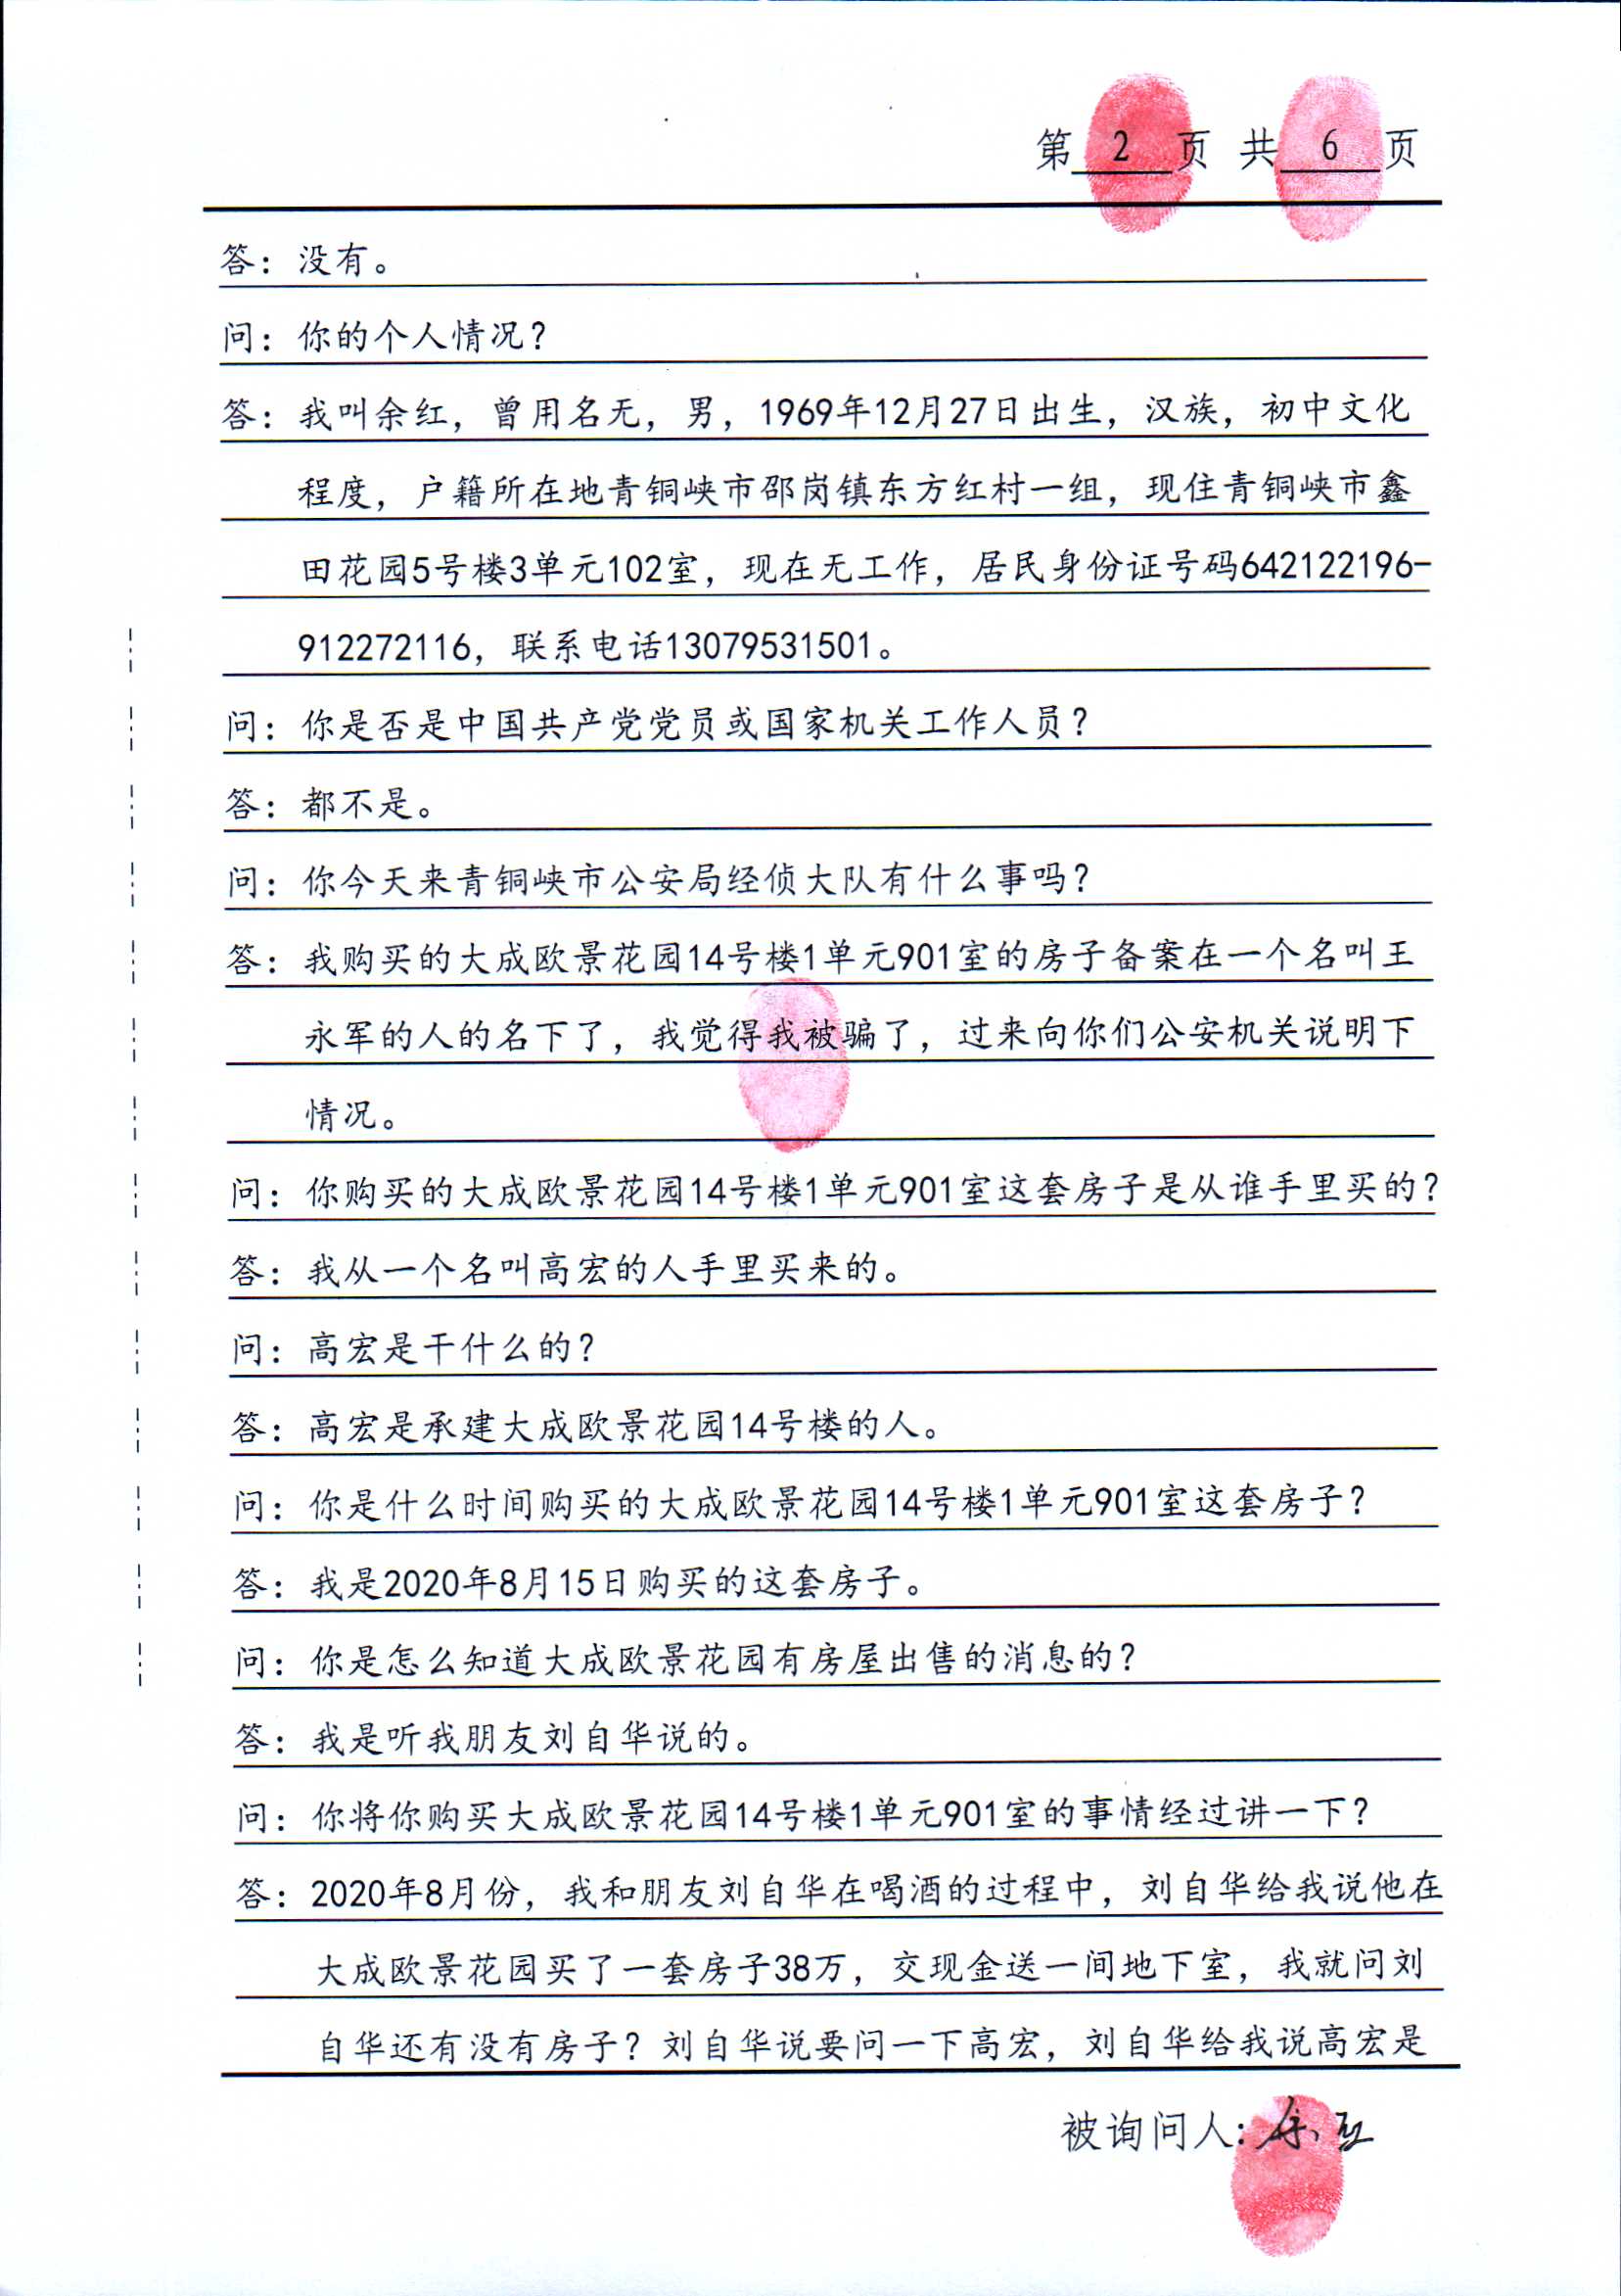 第 2 页 共 6 页
答：没有。
问：你的个人情况？
答：我叫余红，曾用名无，男，1969年12月27日出生，汉族，初中文化
程度，户籍所在地青铜峡市邵岗镇东方红村一组，现住青铜峡市鑫
田花园5号楼3单元102室，现在无工作，居民身份证号码642122196-
912272116，联系电话13079531501。
问：你是否是中国共产党党员或国家机关工作人员？
答：都不是。
问：你今天来青铜峡市公安局经侦大队有什么事吗？
答：我购买的大成欧景花园14号楼1单元901室的房子备案在一个名叫王
永军的人的名下了，我觉得我被骗了，过来向你们公安机关说明下
情况。
问：你购买的大成欧景花园14号楼1单元901室这套房子是从谁手里买的？
答：我从一个名叫高宏的人手里买来的。
问：高宏是干什么的？
答：高宏是承建大成欧景花园14号楼的人。
问：你是什么时间购买的大成欧景花园14号楼1单元901室这套房子？
答：我是2020年8月15日购买的这套房子。
问：你是怎么知道大成欧景花园有房屋出售的消息的？
答：我是听我朋友刘自华说的。
问：你将你购买大成欧景花园14号楼1单元901室的事情经过讲一下？
答：2020年8月份，我和朋友刘自华在喝酒的过程中，刘自华给我说他在
大成欧景花园买了一套房子38万，交现金送一间地下室，我就问刘
自华还有没有房子？刘自华说要问一下高宏，刘自华给我说高宏是
被询问人：余红